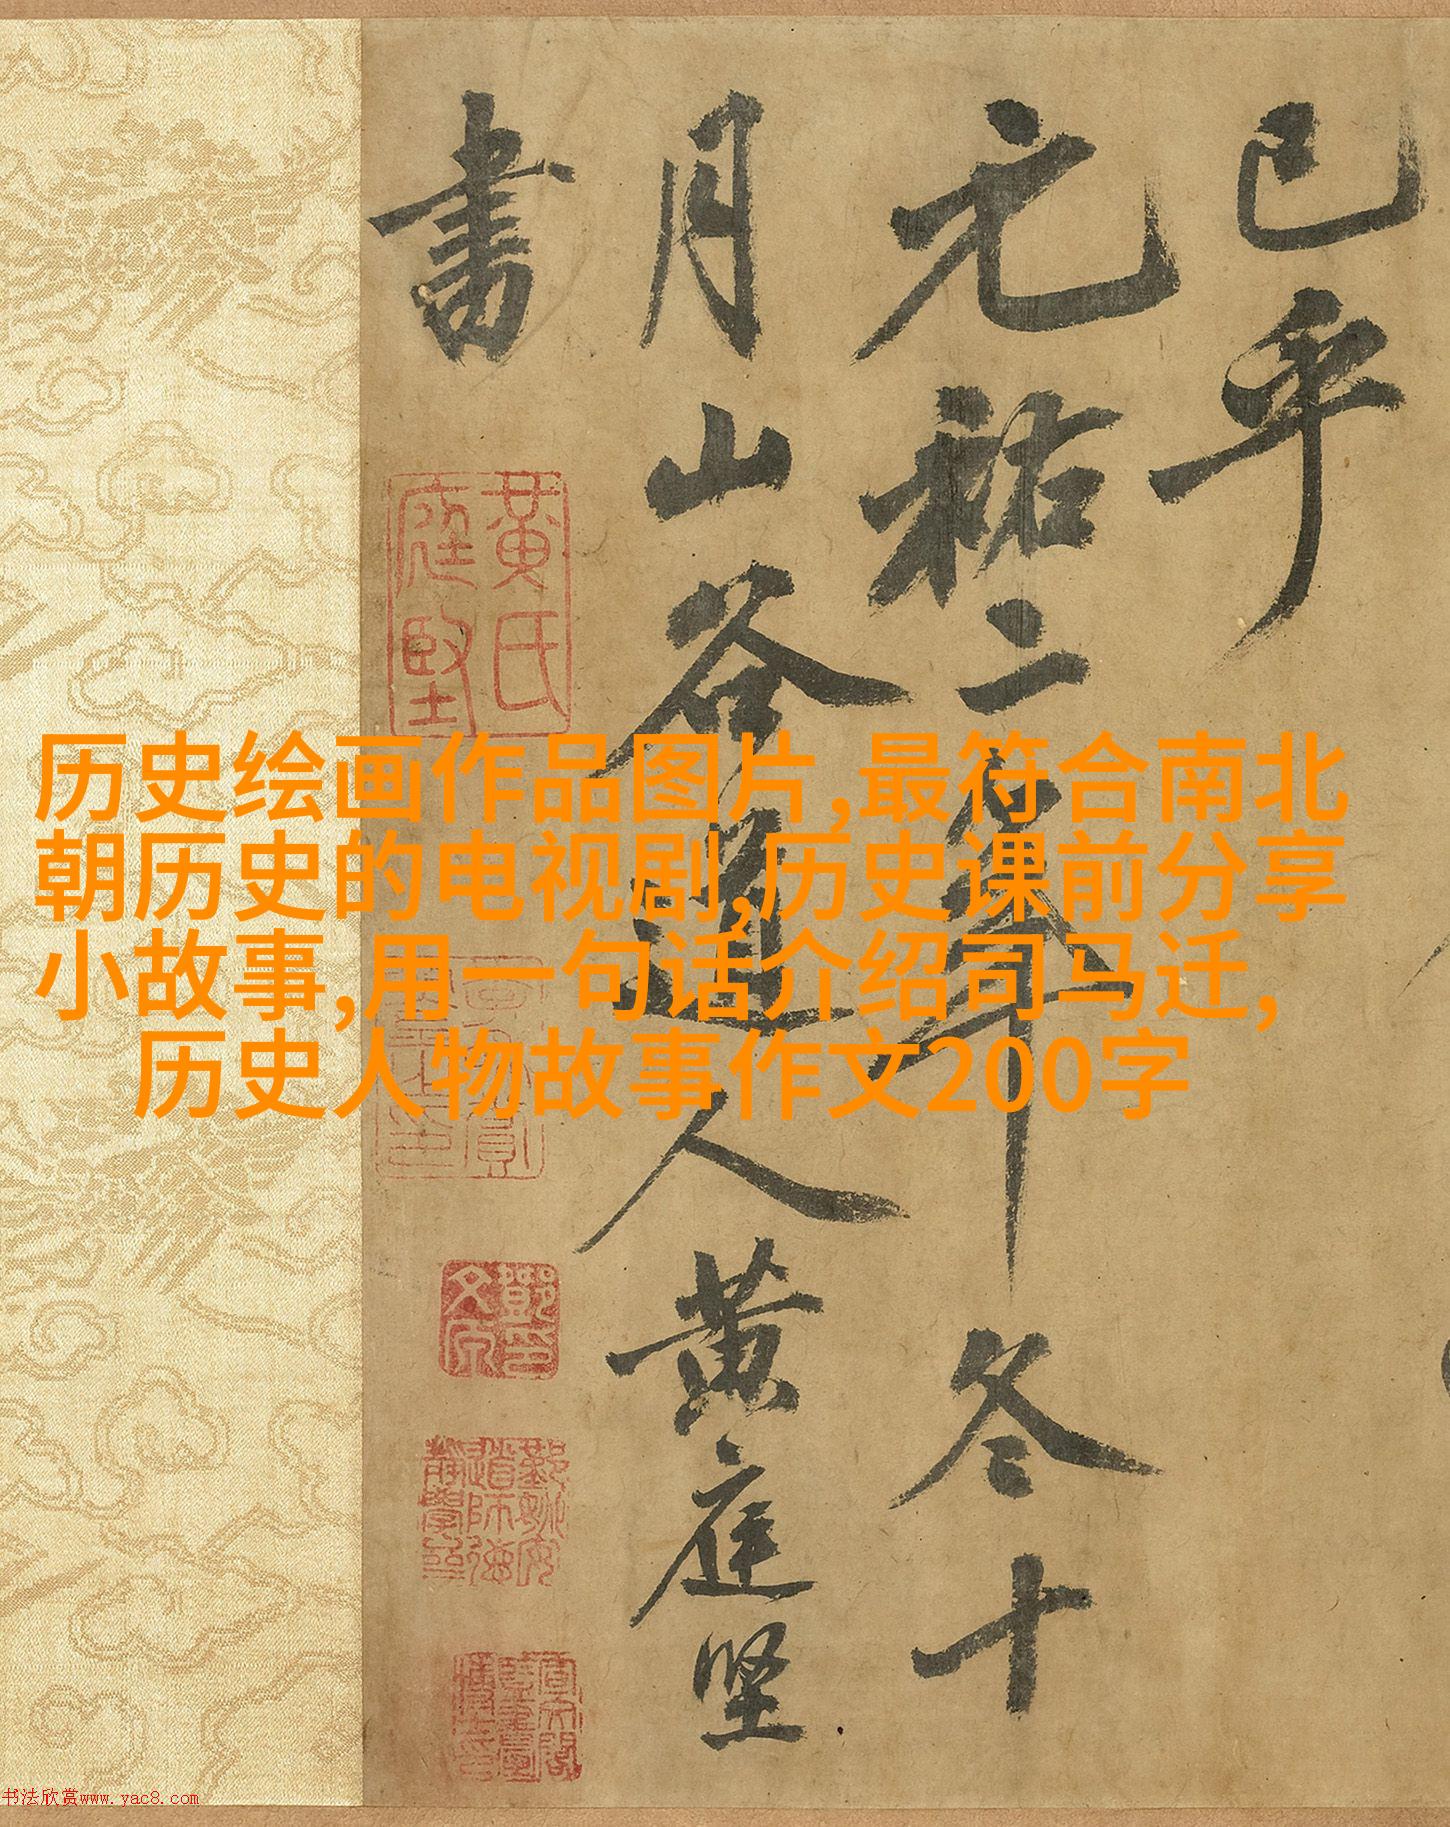 已乎
元祐二年冬十
月山谷道人黄庭坚
書
黄氏
庭堅
历史绘画作品图片,最符合南北
朝历史的电视剧,历史课前分享
小故事,用一句话介绍司马迁,
历史人物故事作文200字
书法欣赏www.yac8.com